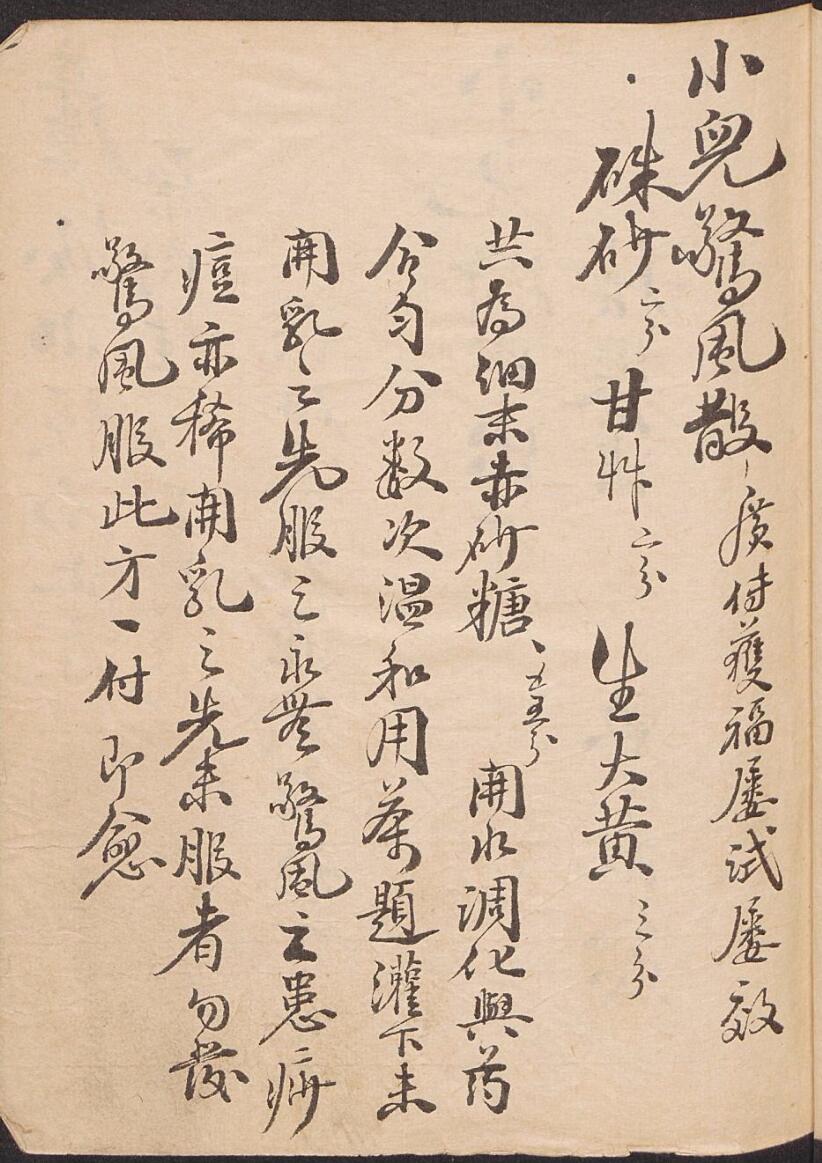 小兒驚風散 廣付獲福屢試屢效
硃砂 二分 甘艸 二分 生大黃 三分
共為細末赤砂糖 五分 開水調化與药
合匀分数次温和用茶題灌下未
開乳之先服之永無驚風之患痳
痘亦稀開乳之先未服者勿發
驚風服此方一付即愈